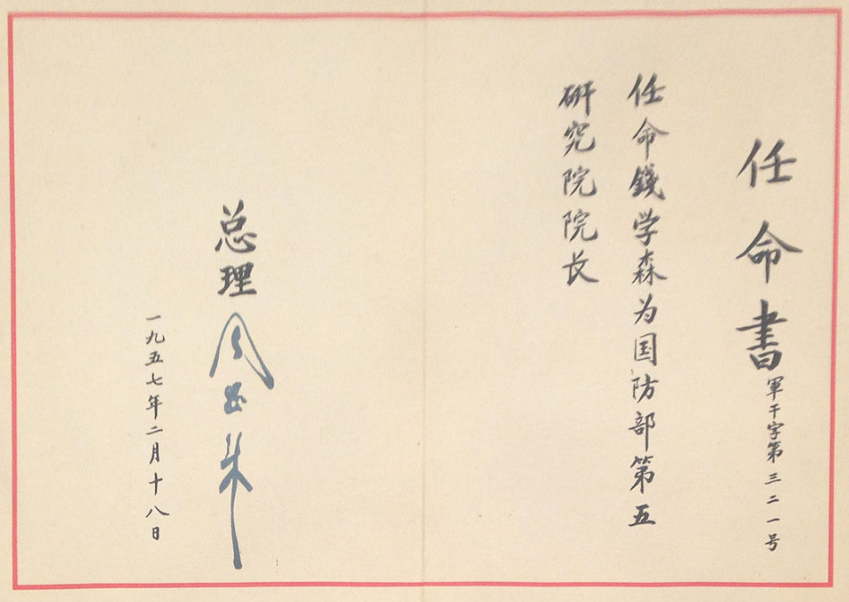 任命书
軍干字第三二一号
任命錢学森为国防部第五
研究院院长
总理 周恩来
一九五七年二月十八日